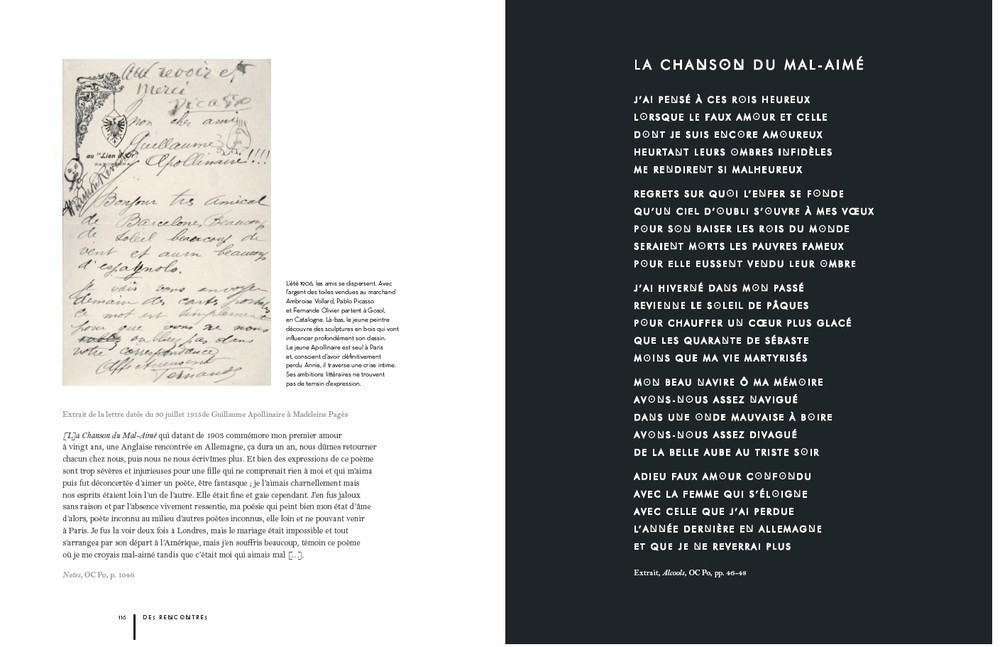 Au revoir et
Merci
Picasso
mon cher ami
Guillaume
Apollinaire!!!
au "Lion d'Or"
Bonjour très amical
de Barcelone, Beaucoup
de soleil beaucoup de
vent et aussi beaucoup
d'espagnols.
Je vais vous envoyer
demain des cartes postales
ce mot est simplement
pour que vous ne nous
oubliez pas dans
votre correspondance
Affectueusement
Fernande
L'été 1906, les amis se dispersent. Avec
l'argent des toiles vendues au marchand
Ambroise Vollard, Pablo Picasso
et Fernande Olivier partent à Gosol,
en Catalogne. Là-bas, le jeune peintre
découvre des sculptures en bois qui vont
influencer profondément son dessin.
Le jeune Apollinaire est seul à Paris
et, conscient d'avoir définitivement
perdu Annie, il traverse une crise intime.
Ses ambitions littéraires ne trouvent
pas de terrain d'expression.
Extrait de la lettre datée du 30 juillet 1915de Guillaume Apollinaire à Madeleine Pagès
[L]a Chanson du Mal-Aimé qui datant de 1903 commémore mon premier amour
à vingt ans, une Anglaise rencontrée en Allemagne, ça dura un an, nous dûmes retourner
chacun chez nous, puis nous ne nous écrivîmes plus. Et bien des expressions de ce poème
sont trop sévères et injurieuses pour une fille qui ne comprenait rien à moi et qui m'aima
puis fut déconcertée d'aimer un poète, être fantasque ; je l'aimais charnellement mais
nos esprits étaient loin l'un de l'autre. Elle était fine et gaie cependant. J'en fus jaloux
sans raison et par l'absence vivement ressentie, ma poésie qui peint bien mon état d'âme
d'alors, poète inconnu au milieu d'autres poètes inconnus, elle loin et ne pouvant venir
à Paris. Je fus la voir deux fois à Londres, mais le mariage était impossible et tout
s'arrangea par son départ à l'Amérique, mais j'en souffris beaucoup, témoin ce poème
où je me croyais mal-aimé tandis que c'était moi qui aimais mal [...].
Notes, OC Po, p. 1046
116 DES RENCONTRES
LA CHANSON DU MAL-AIMÉ
J'AI PENSÉ À CES ROIS HEUREUX
LORSQUE LE FAUX AMOUR ET CELLE
DONT JE SUIS ENCORE AMOUREUX
HEURTANT LEURS OMBRES INFIDÈLES
ME RENDIRENT SI MALHEUREUX
REGRETS SUR QUOI L'ENFER SE FONDE
QU'UN CIEL D'OUBLI S'OUVRE À MES VŒUX
POUR SON BAISER LES ROIS DU MONDE
SERAIENT MORTS LES PAUVRES FAMEUX
POUR ELLE EUSSENT VENDU LEUR OMBRE
J'AI HIVERNÉ DANS MON PASSÉ
REVIENNE LE SOLEIL DE PÂQUES
POUR CHAUFFER UN CŒUR PLUS GLACÉ
QUE LES QUARANTE DE SÉBASTE
MOINS QUE MA VIE MARTYRISÉS
MON BEAU NAVIRE Ô MA MÉMOIRE
AVONS-NOUS ASSEZ NAVIGUÉ
DANS UNE ONDE MAUVAISE À BOIRE
AVONS-NOUS ASSEZ DIVAGUÉ
DE LA BELLE AUBE AU TRISTE SOIR
ADIEU FAUX AMOUR CONFONDU
AVEC LA FEMME QUI S'ÉLOIGNE
AVEC CELLE QUE J'AI PERDUE
L'ANNÉE DERNIÈRE EN ALLEMAGNE
ET QUE JE NE REVERRAI PLUS
Extrait, Alcools, OC Po, pp. 46-48